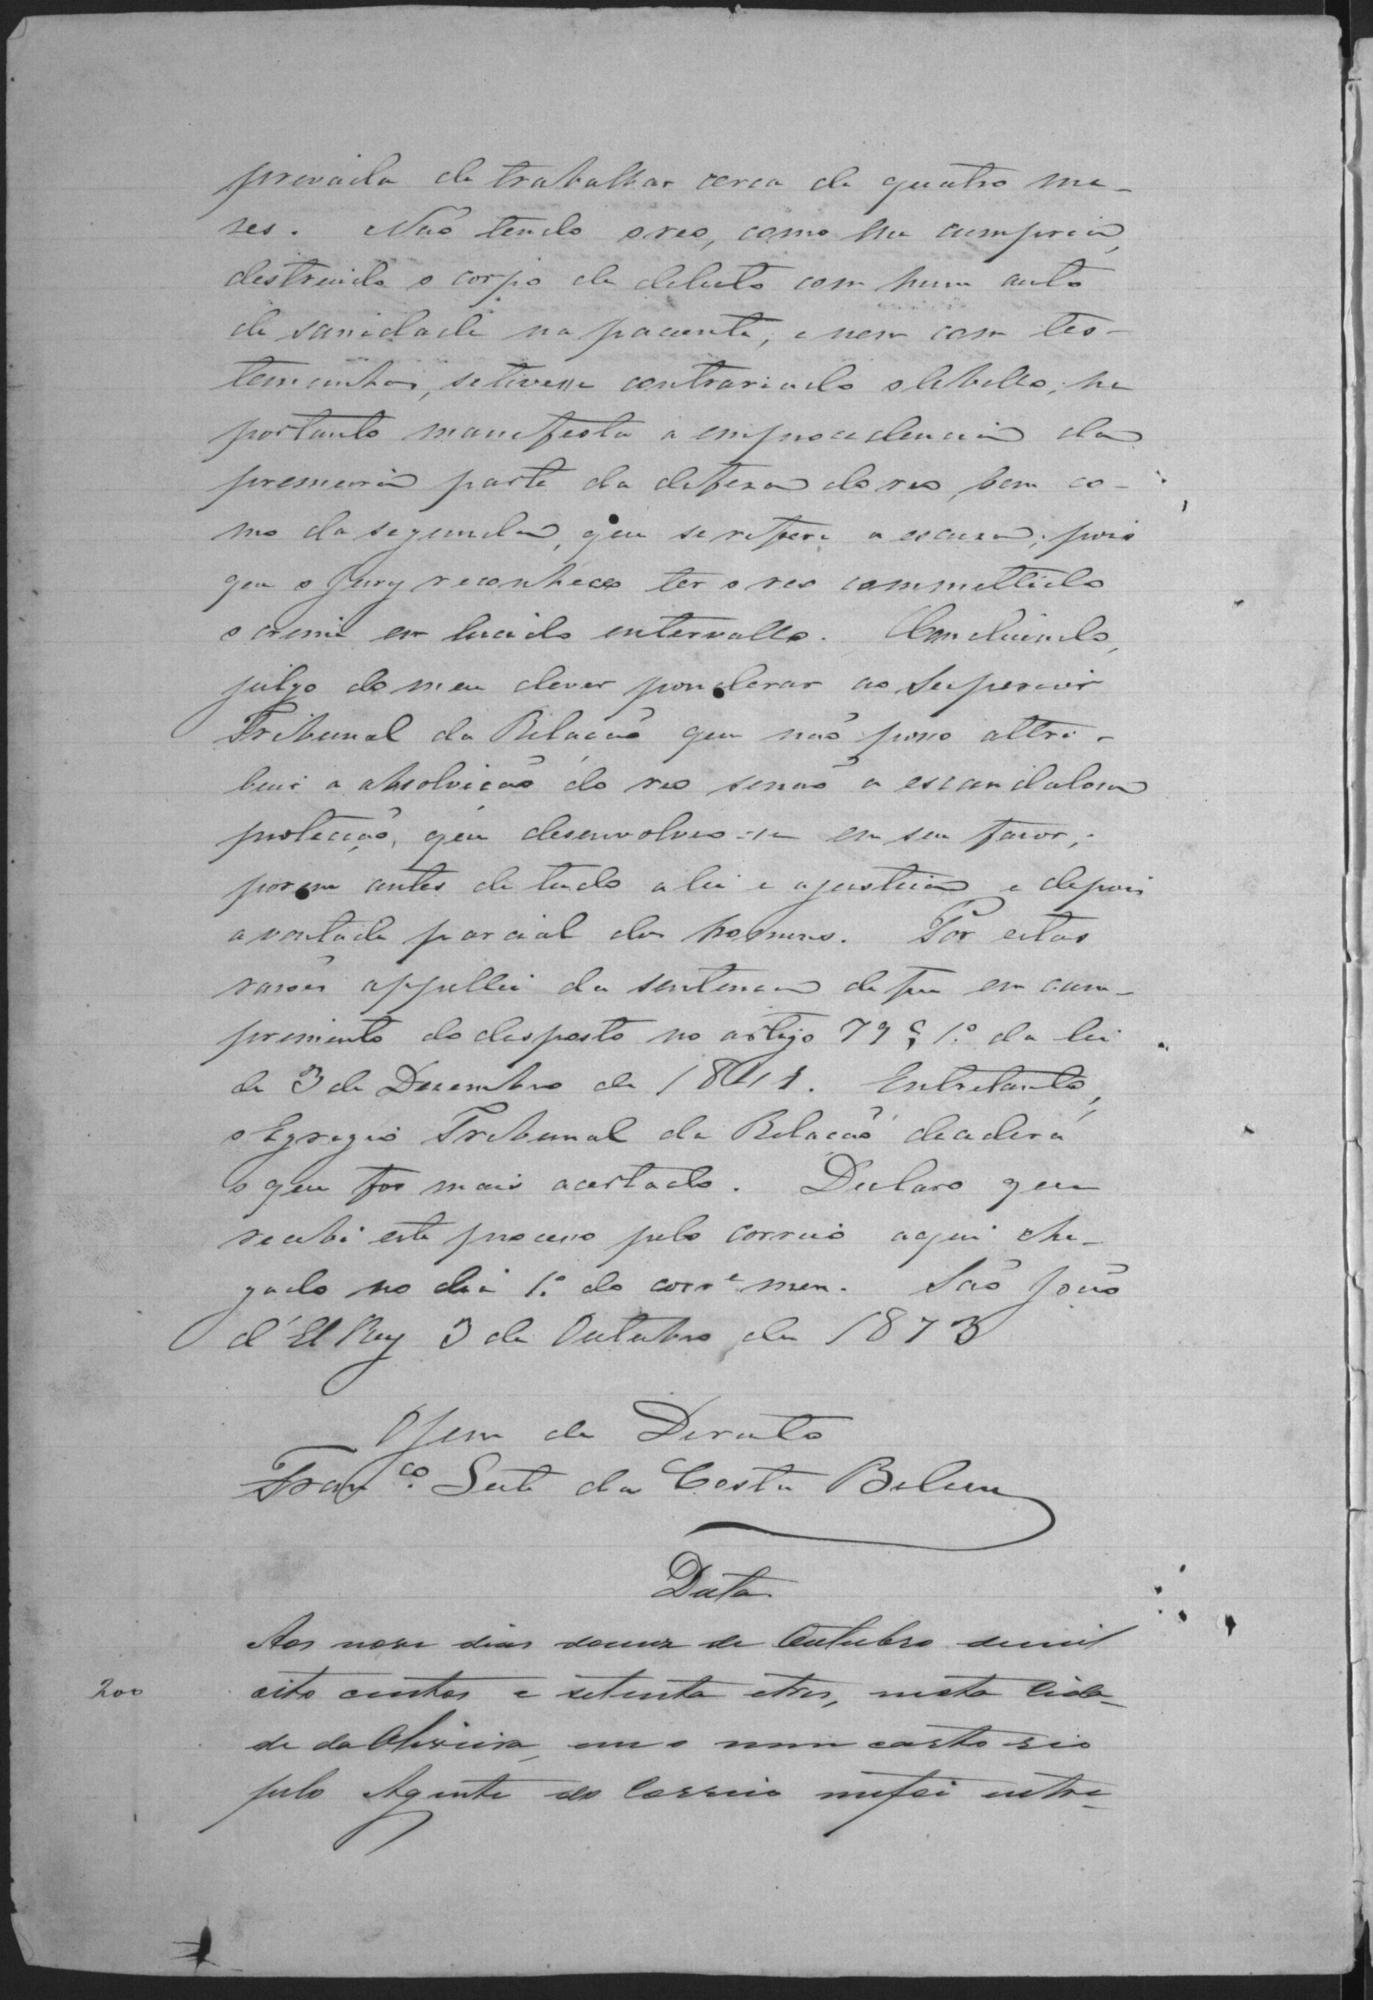 privada de trabalhar cerca de quatro me-
ses. Não tendo o reo, como lhe cumpria,
destruido o corpo de delicto com hum auto
de sanidade na paciente, e nem com tes-
temunhas, se tivesse contrariado o libello, he
portanto manifesta a improcedencia da
primeira parte da defeza do reo, bem co-
mo da segunda, que se refere a escusa, pois
que o Jury reconheceo ter o reo commettido
o crime em lucido intervallo. Concluindo,
julgo do meu dever ponderar ao Superior
Tribunal da Relação que não posso attri-
buir a absolvição do reo senão a escandalosa
proteção, que desenvolveo-se em seu favor,
porem antes de tudo a lei e a justiça e depois
a vontade parcial dos homens. Por estas
rasões appellei da sentença de fls em cum-
primento do desposto no artigo 79 § 1.º da lei
de 3 de Dezembro de 1841. Entretanto,
o Egregio Tribunal da Relação decederá
o que for mais acertado. Declaro que
recebi este processo pelo correio aqui che-
gado no dia 1.º do corr.e mez. São João
d'El Rey 3 de Outubro de 1873
O Juiz de Direito
Fran.co Leite da Costa Belem
Data
Aos nove dias do mez de Outubro de mil
oito centos e setenta e tres, nesta Cida-
de da Oliveira, em o meu cartorio
200
pelo Agente do Correio me foi entre-